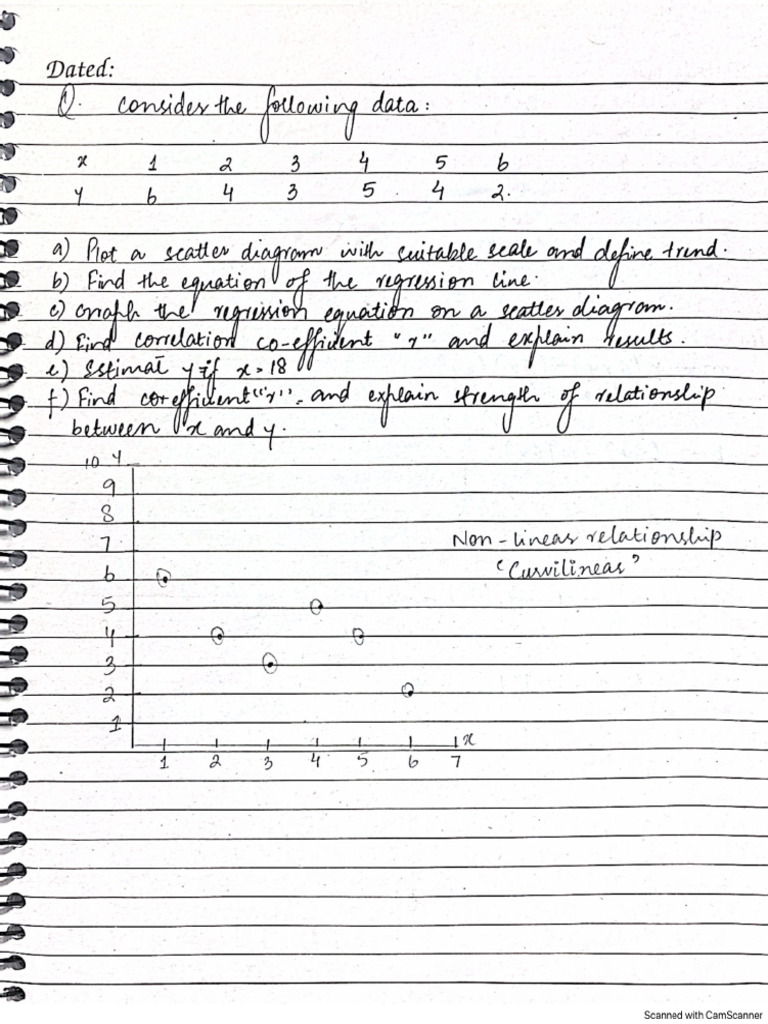 Dated:
Q. Consider the following data:
x 1 2 3 4 5 6
y 6 4 3 5 4 2.
a) Plot a scatter diagram with suitable scale and define trend.
b) Find the equation of the regression line.
c) Graph the regression equation on a scatter diagram.
d) Find correlation co-efficient "r" and explain results.
e) Estimat y if x = 18
f) Find co-efficient "r", and explain strength of relationship
between x and y.
10 Y
9
8
7
6
5
4
3
2
1
Non-linear relationship
"Curvilinear"
x
1 2 3 4 5 6 7
Scanned with CamScanner